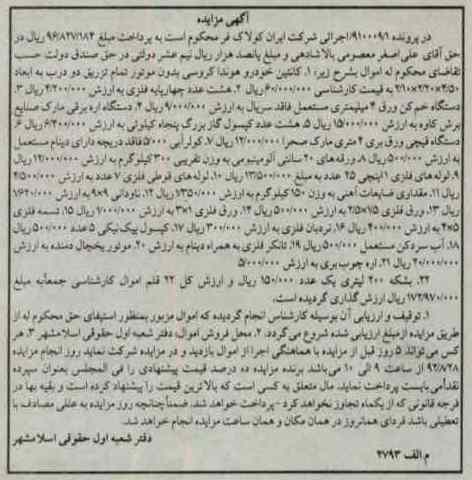 آگهی مزایده
در پرونده ۹۱۰۰۰۹/۱ اجرائی شرکت ایران کولاک فر محکوم است به پرداخت مبلغ ۹۶/۸۲۷/۱۸۴ ریال در
حق آقای علی اصغر معصومی بالاشادهی و مبلغ پانصد هزار ریال نیم عشر دولتی در حق صندوق دولت حسب
تقاضای محکوم له اموال بشرح زیر: ۱. کانتین خودرو هوندا کروسی بدون موتور تمام تزریق دو درب به ابعاد
۲/۵۰×۲/۲۰×۲/۱۰ به قیمت کارشناسی ۶۰/۰۰۰/۰۰۰ ریال ۲. هشت عدد چهارپایه فلزی به ارزش ۴/۲۰۰/۰۰۰ ریال ۳.
دستگاه خم کن ورق ۴ میلیمتری مستعمل فاقد سریال به ارزش ۹/۰۰۰/۰۰۰ ریال ۴. دستگاه اره برقی مارک صنایع
برش کاوه به ارزش ۱۵/۰۰۰/۰۰۰ ریال ۵. هشت عدد کپسول گاز بزرگ پنجاه کیلوئی به ارزش ۶/۴۰۰/۰۰۰ ریال ۶.
دستگاه قیچی ورق بری ۴ متری مارک صحرا ۱۲/۰۰۰/۰۰۰ ریال ۷. کولرآبی ۵۰۰۰ فاقد دریچه دارای دینام مستعمل
به ارزش ۵۰۰/۰۰۰ ریال ۸. ورقه‌های ۲۰ سانتی آلومینیومی به وزن تقریبی ۳۰۰ کیلوگرم به ارزش ۱۲/۰۰۰/۰۰۰ ریال
۹. لوله‌های فلزی ۱ اینچی ۲۵ عدد به مبلغ ۱۳/۵۰۰/۰۰۰ ریال ۱۰. لوله‌های قوطی فلزی ۷ عدد به ارزش ۴/۵۰۰/۰۰۰
ریال ۱۱. مقداری ضایعات آهنی به وزن ۱۵۰ کیلوگرم به ارزش ۷۳۵۰/۰۰۰ ریال ۱۲. ناودانی ۹×۹ به ارزش ۱۶۲۰/۰۰۰
ریال ۱۳. ورق فلزی ۲/۵×۷/۵ به ارزش ۵۰۰/۰۰۰ ریال ۱۴. ورق فلزی ۱×۳ به ارزش ۷۰۰/۰۰۰ ریال ۱۵. تسمه فلزی
۴×۵ به ارزش ۴۰۰/۰۰۰ ریال ۱۶. نردبان فلزی به ارزش ۳۰۰/۰۰۰ ریال ۱۷. کپسول پیک نیکی ۵ عدد ۵۰۰/۰۰۰ ریال
۱۸. آب سردکن مستعمل ۵۰۰/۰۰۰ ریال ۱۹. تانکر فلزی به همراه دینام به ارزش ۲۰. موتور یخچال دمنده به ارزش
۲۰/۰۰۰/۰۰۰ ریال ۲۱. اره چوب بری به ارزش ۵/۰۰۰/۰۰۰
۲۲. بشکه ۲۰۰ لیتری یک عدد ۱۵۰/۰۰۰ ریال و ارزش کل ۲۲ قلم اموال کارشناسی جمعاً به مبلغ
۱۷۲/۹۷۰/۰۰۰ ریال ارزش گذاری گردیده است.
۱. توقیف و ارزیابی آن بوسیله کارشناس انجام گردیده که اموال مزبور بمنظور استیفای حق محکوم له از
طریق مزایده ازمبلغ ارزیابی شده شروع می‌گردد. ۲. محل فروش اموال، دفتر شعبه اول حقوقی اسلامشهر ۳. هر
کس می‌تواند ۵ روز قبل از مزایده با هماهنگی اجرا از اموال بازدید و در مزایده شرکت نماید روز انجام مزایده
۹۲/۸/۲۸ از ساعت ۹ الی ۱۰ می‌باشد برنده مزایده ده درصد قیمت پیشنهادی را فی المجلس بعنوان سپرده
نقداً می‌بایست پرداخت نماید. مال متعلق به کسی است که بالاترین قیمت را پیشنهاد کرده است و بقیه بها در
فرجه قانونی که از یکماه تجاوز نخواهد کرد - پرداخت خواهد شد. ضمناً چنانچه روز مزایده به عللی مصادف با
تعطیلی باشد فردای همانروز در همان مکان و همان ساعت مزایده انجام خواهد شد.
دفتر شعبه اول حقوقی اسلامشهر
م الف ۲۷۹۳